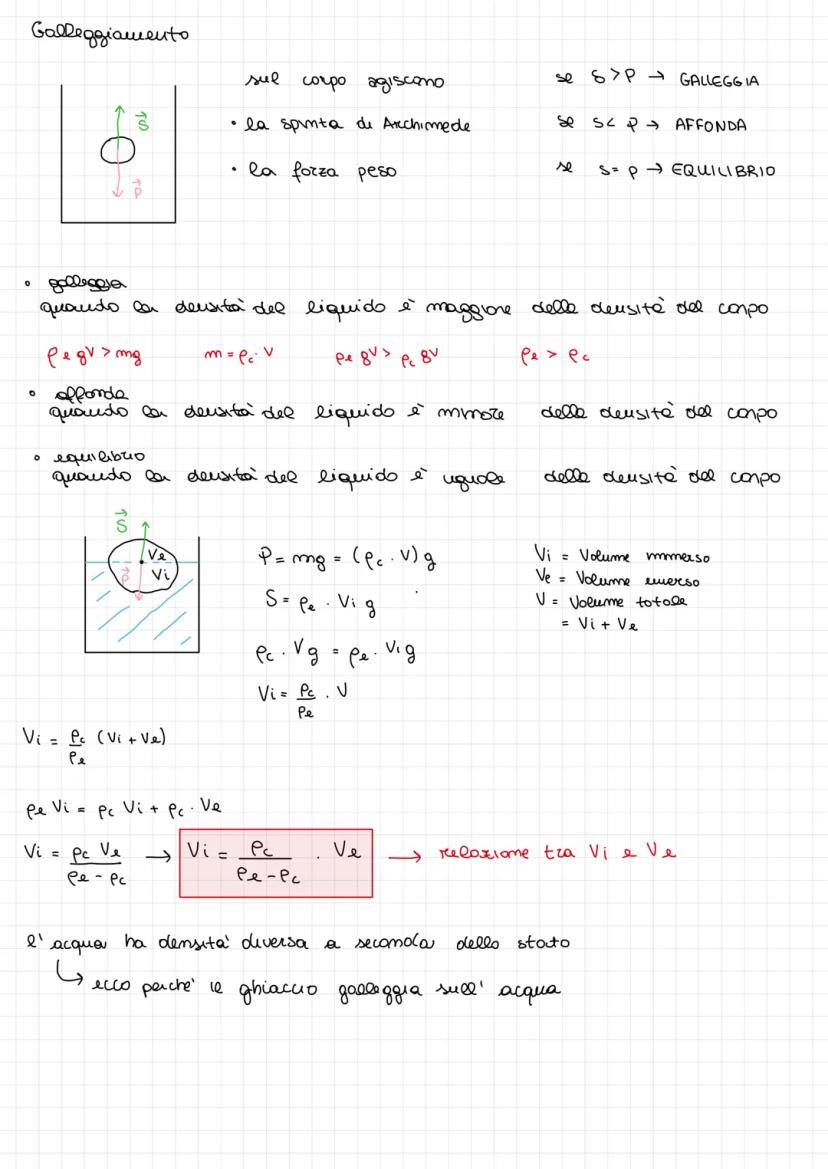 Galleggiamento
sul corpo agiscono
• la spinta di Archimede
• la forza peso
se S > P → GALLEGGIA
se S < P → AFFONDA
se S = P → EQUILIBRIO
S
P
• galleggia
quando la densità del liquido è maggiore della densità del corpo
ρe gV > mg   m = ρc · V   ρe gV > ρc gV   ρe > ρc
• affonda
quando la densità del liquido è minore della densità del corpo
• equilibrio
quando la densità del liquido è uguale della densità del corpo
S
Ve
P Vi
P = mg = (ρc · V) g
S = ρe · Vi g
ρc · Vg = ρe · Vig
Vi = ρc/ρe · V
Vi = Volume immerso
Ve = Volume emerso
V = Volume totale
= Vi + Ve
Vi = ρc/ρe (Vi + Ve)
ρe Vi = ρc Vi + ρc · Ve
Vi = ρc Ve/(ρe - ρc) → Vi = ρc/(ρe - ρc) · Ve → relazione tra Vi e Ve
l'acqua ha densità diversa a seconda dello stato
↳ ecco perché il ghiaccio galleggia sull'acqua